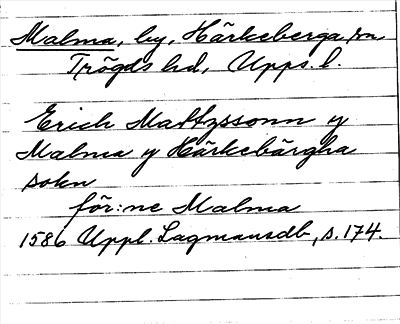 Malma, by, Härkeberga sn
Trögds hd, Upps. l.
Erich Mattzssonn y
Malma y Härkebärgha
sokn
för:ne Malma
1586 Uppl. Lagmansdb, s. 174.